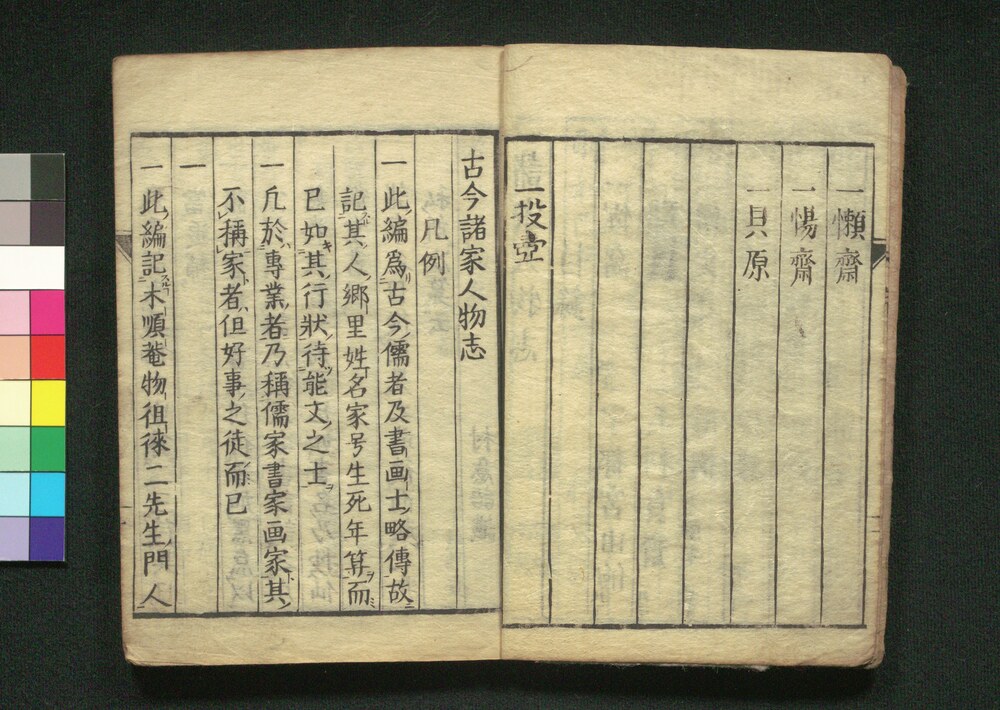 一懶齋
一惕齋
一貝原
一投壺
古今諸家人物志
凡例
一此編為古今儒者及書画士略傳故
記其人郷里姓名家号生死年算而
已如其行狀待能文之士
一凡於專業者乃稱儒家書家画家其
不稱家者但好事之徒而已
一
一此編記木順菴物徂徠二先生門人